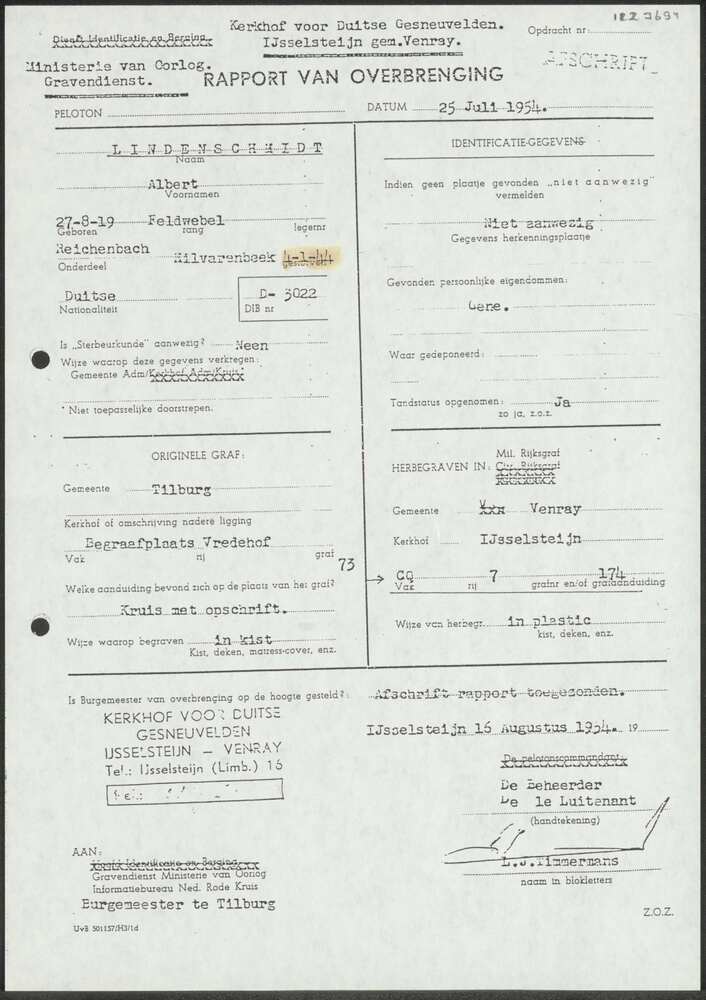 Kerkhof voor Duitse Gesneuvelden.
IJsselsteijn gem.Venray.
Dienst Identificatie en Berging
Opdracht nr:
AFSCHRIFT
Ministerie van Oorlog.
Gravendienst.
RAPPORT VAN OVERBRENGING
PELOTON
DATUM 25 Juli 1954.
LINDENSCHMIDT
Naam
Albert
Voornamen
27-8-19 Feldwebel
Geboren rang legernr
Reichenbach Hilvarenbeek 4-1-44
Onderdeel gesneuveld
Duitse D- 3022
Nationaliteit DIB nr
Is „Sterbeurkunde" aanwezig? Neen
Wijze waarop deze gegevens verkregen:
Gemeente Adm/Kerkhof Adm/Kruis*
* Niet toepasselijke doorstrepen.
IDENTIFICATIE-GEGEVENS
Indien geen plaatje gevonden „niet aanwezig"
vermelden
Niet aanwezig
Gegevens herkenningsplaatje
Gevonden persoonlijke eigendommen:
Gene.
Waar gedeponeerd:
Tandstatus opgenomen: Ja
zo ja, z.o.z.
ORIGINELE GRAF:
Gemeente Tilburg
Kerkhof of omschrijving nadere ligging
Begraafplaats Vredehof
Vak rij graf 73
Welke aanduiding bevond zich op de plaats van het graf?
Kruis met opschrift.
Wijze waarop begraven in kist
Kist, deken, matress-cover, enz.
Mil. Rijksgraf
HERBEGRAVEN IN: Civ. Rijksgraf
Gemeente Venray
Kerkhof IJsselsteijn
→ CQ 7 174
Vak rij grafnr en/of grafaanduiding
Wijze van herbegr. in plastic
kist, deken, enz.
Is Burgemeester van overbrenging op de hoogte gesteld?: Afschrift rapport toegezonden.
KERKHOF VOOR DUITSE
GESNEUVELDEN
IJSSELSTEIJN — VENRAY
Tel.: IJsselsteijn (Limb.) 16
IJsselsteijn 16 Augustus 1954. 19
De pelotonscommandant,
De Beheerder
De 1e Luitenant
(handtekening)
L.J.Timmermans
naam in blokletters
AAN:
Dienst Identificatie en Berging
Gravendienst Ministerie van Oorlog
Informatiebureau Ned. Rode Kruis
Burgemeester te Tilburg
Z.O.Z.
UvB 501157/H3/1d